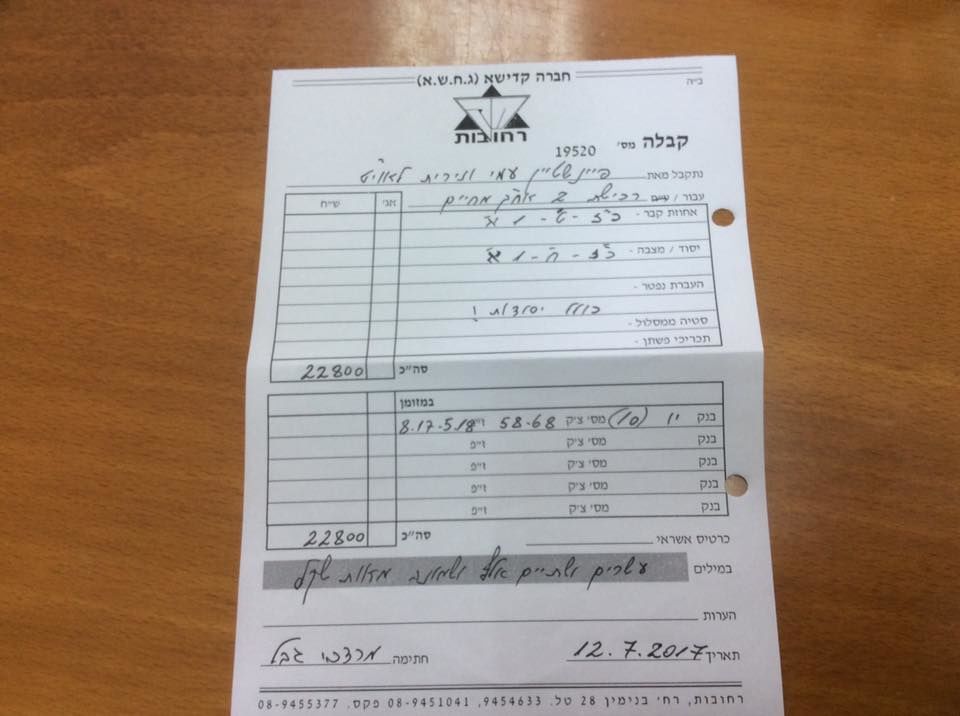 ב"ה
חברה קדישא (ג.ח.ש.א)
רחובות
קבלה מס' 19520
נתקבל מאת פיינשטיין עמי ונירית
עבור / עם רכישת 2 מחיים
אג' ש"ח
אחוזת קבר - כ"ז - ט - 1 א'
יסוד / מצבה - כ"ז - ח - 1 א'
העברת נפטר -
כולל יסודות !
סטיה ממסלול -
תכריכי פשתן -
סה"כ 22800
במזומן
בנק יו (10) מס' צ'ק 58-68 ז"פ 8.17-5.18
בנק מס' צ'ק ז"פ
בנק מס' צ'ק ז"פ
בנק מס' צ'ק ז"פ
בנק מס' צ'ק ז"פ
כרטיס אשראי סה"כ 22800
במילים עשרים ושתיים אלף ושמונה מאות שקל
הערות
תאריך 12.7.2017 חתימה מרדכי גבל
רחובות, רח' בנימין 28 טל. 9454633, 08-9451041 פקס. 08-9455377